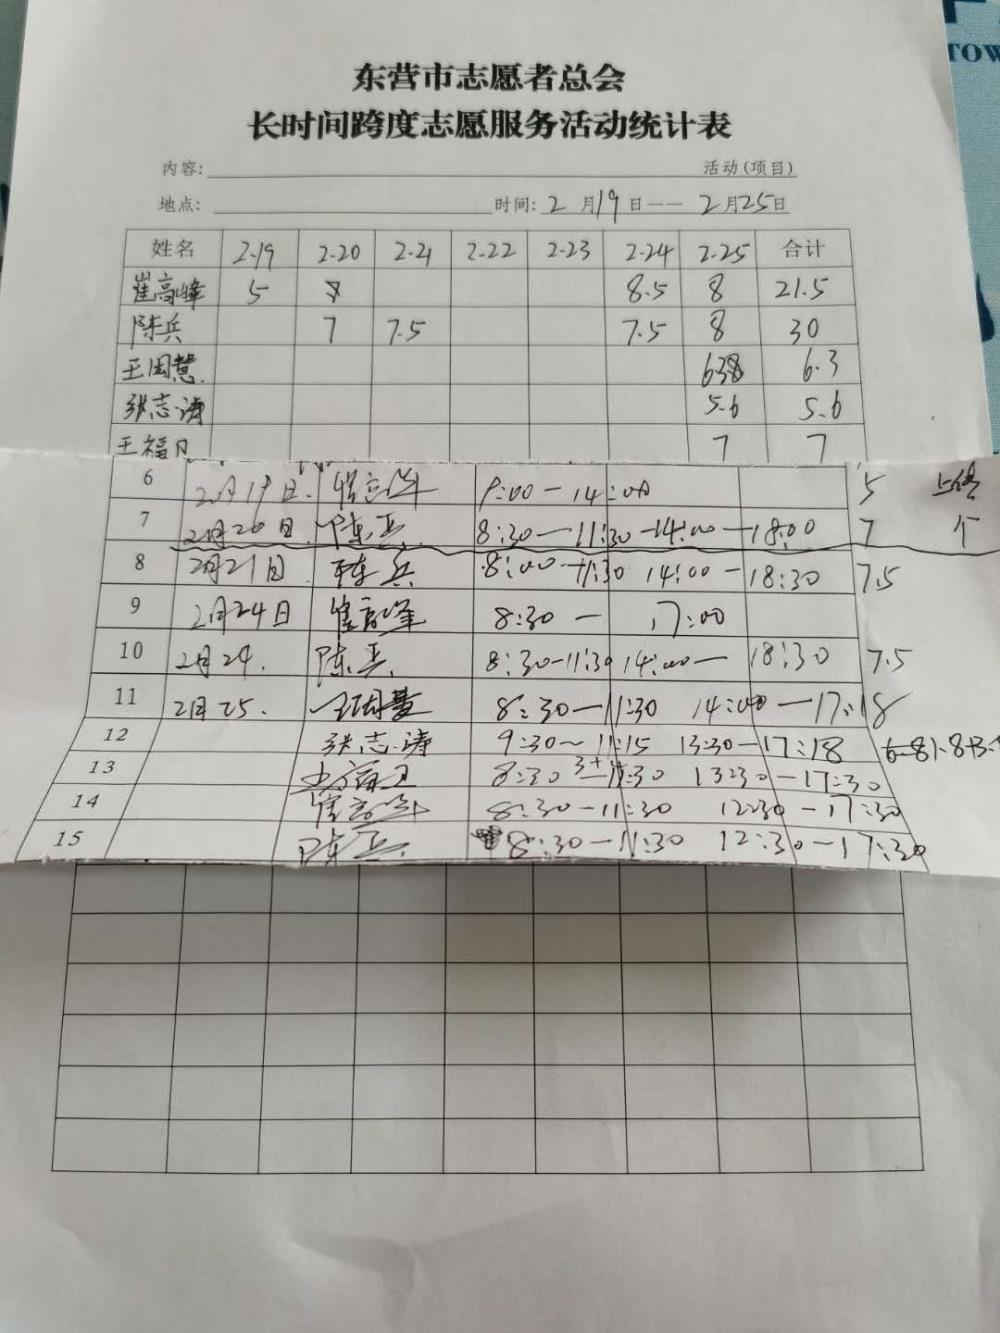 TOW
东营市志愿者总会
长时间跨度志愿服务活动统计表
内容: 活动(项目)
地点: 时间: 2月19日——2月25日
姓名 2-19 2-20 2-21 2-22 2-23 2-24 2-25 合计
崔高峰 5 8.5 8 21.5
陈兵 7 7.5 7.5 8 30
王国慧 6.3
张志涛 5.6 5.6
王福 7 7
6 2月19日. 崔高峰 9:00—14:00 5
7 2月20日 陈兵. 8:30—11:30 14:00—18:00 7 个
8 2月21日. 陈兵 8:00—11:30 14:00—18:30 7.5
9 2月24日 崔高峰 8:30— 17:00
10 2月24. 陈兵. 8:30—11:30 14:00— 18:30 7.5
11 2月25. 王国慧 8:30—11:30 14:00—17:18
12 张志涛 9:30~11:15 13:30—17:18
13 8:30—11:30 13:30—17:30
14 崔高峰 8:30—11:30 12:30—17:30
15 陈兵. 8:30—11:30 12:30—17:30